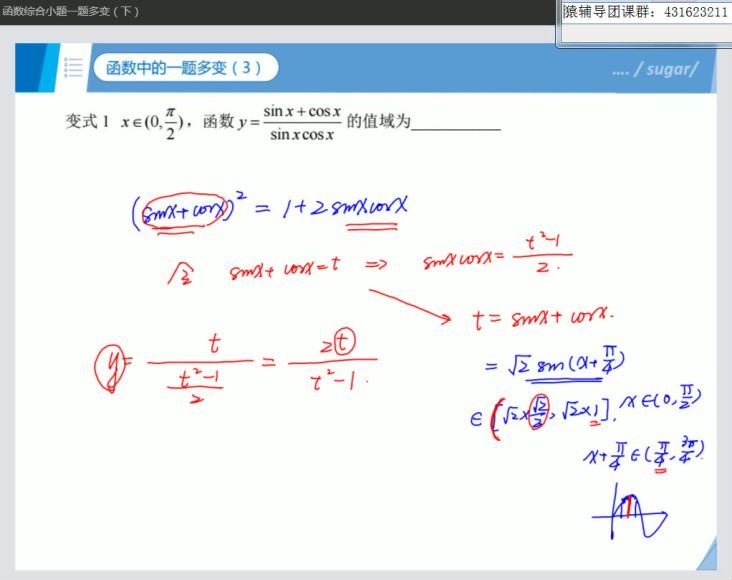 函数综合小题一题多变（下）
猿辅导团课群：431623211
函数中的一题多变（3）
.... / sugar/
变式1 x∈(0, π/2)，函数 y = (sin x + cos x)/(sin x cos x) 的值域为__________
(sinx+cosx)² = 1+2sinxcosx
令 sinx+cosx=t ⇒ sinxcosx = (t²-1)/2.
t = sinx+cosx.
y = t/((t²-1)/2) = 2t/(t²-1).
= √2 sin(x+π/4)
∈ (√2×√2/2, √2×1], x∈(0, π/2)
x+π/4∈(π/4, 3π/4).